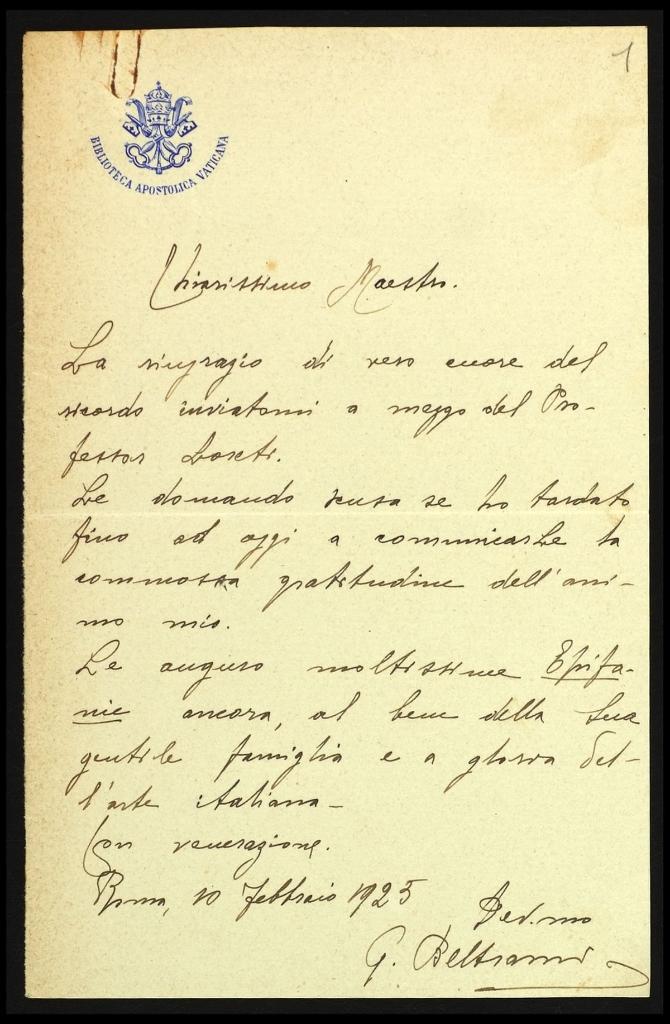 1
BIBLIOTECA APOSTOLICA VATICANA
Chiarissimo Maestro.
La ringrazio di vero cuore del
ricordo inviatomi a mezzo del Pro-
fessor
Le domando scusa se ho tardato
fino ad oggi a comunicarLe la
commossa gratitudine dell'ani-
mo mio.
Le auguro moltissime Epifa-
nie ancora, al bene della Sua
gentile famiglia e a gloria del-
l'arte italiana -
Con venerazione.
Roma, 10 Febbraio 1925
Dev.mo
G. Beltrami